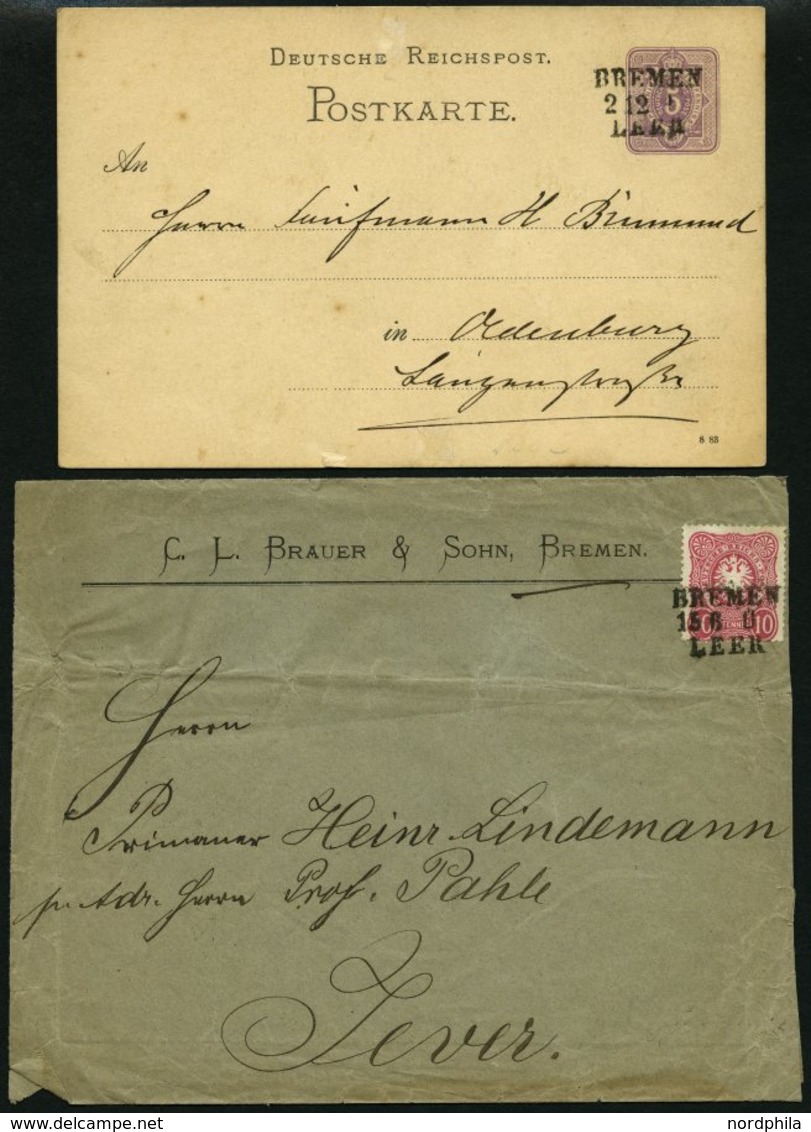 DEUTSCHE REICHSPOST.
POSTKARTE.
BREMEN
2 12
LEER
5
An
Herrn Kaufmann H
in Oldenburg
Langenstraße
8 83
C. L. BRAUER & SOHN, BREMEN.
BREMEN
15 6 II
LEER
10
Herrn
Primaner Heinr. Lindemann
pr. Adr. Herrn Prof. Pahle
Jever.
nordphila